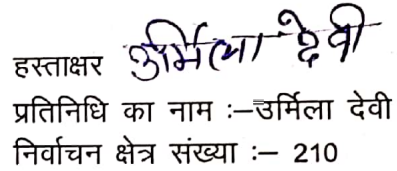 हस्ताक्षर उर्मिला देवी
प्रतिनिधि का नाम :–उर्मिला देवी
निर्वाचन क्षेत्र संख्या :– 210